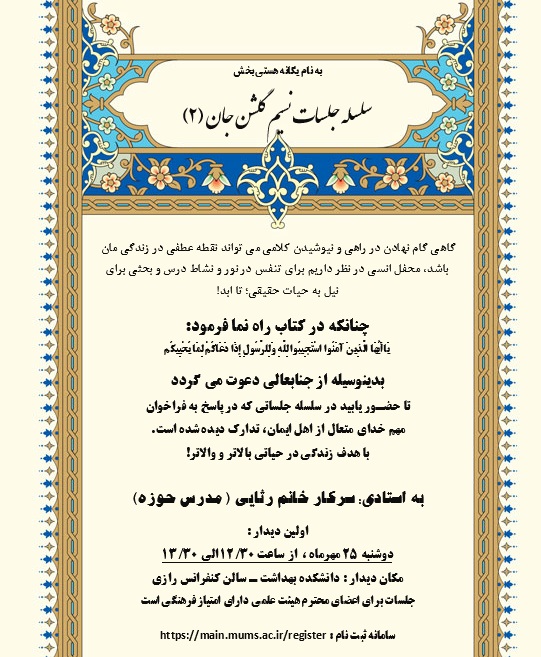 به نام یگانه هستی بخش
سلسله جلسات نسیم گلشن جان (۲)
گاهی گام نهادن در راهی و نیوشیدن کلامی می تواند نقطه عطفی در زندگی مان
باشد، محفل انسی در نظر داریم برای تنفس در نور و نشاط درس و بحثی برای
نیل به حیات حقیقی؛ تا ابد!
چنانکه در کتاب راه نما فرمود:
يَا أَيُّهَا الَّذِينَ آمَنُوا اسْتَجِيبُوا لِلَّهِ وَلِلرَّسُولِ إِذَا دَعَاكُمْ لِمَا يُحْيِيكُمْ
بدینوسیله از جنابعالی دعوت می گردد
تا حضور یابید در سلسله جلساتی که در پاسخ به فراخوان
مهم خدای متعال از اهل ایمان، تدارک دیده شده است.
با هدف زندگی در حیاتی بالاتر و والاتر!
به استادی: سرکار خانم رثایی ( مدرس حوزه)
اولین دیدار :
دوشنبه ۲۵ مهرماه ، از ساعت ۱۲/۳۰ الی ۱۳/۳۰
مکان دیدار : دانشکده بهداشت – سالن کنفرانس رازی
جلسات برای اعضای محترم هیئت علمی دارای امتیاز فرهنگی است
سامانه ثبت نام : https://main.mums.ac.ir/register